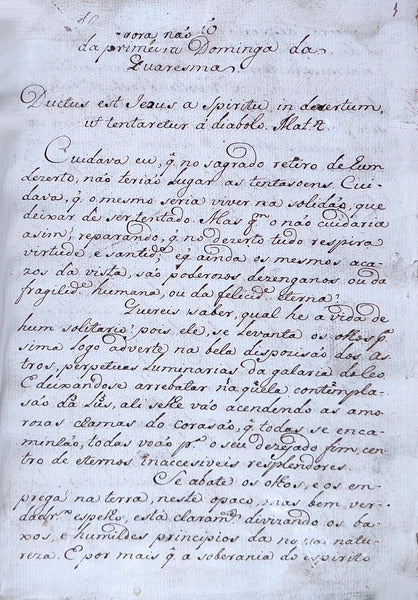 da primeira Dominga da
Quaresma.
Ductus est Jezus a Spiritu in desertum,
ut tentaretur á diabolo. Mat. 4.
Cuidava eu, q̃ no sagrado retiro de hum
dezerto, não terião lugar as tentasoens. Cui-
dava, q̃ o mesmo seria viver na solidão, que
deixar de ser tentado. Mas q.m o não cuidaria
asim, reparando, q̃ no dezerto tudo respira
virtude, e santid.e eq̃ ainda os mesmos aca-
zos da vista, são poderozos dezenganos ou da
fragilid.e humana, ou da felicid.e eterna?
Quereis saber, qual he a vida de
hum solitario? pois ele, se levanta os olhos p.a
sima logo adverte na bela dispozisão dos As-
tros, perpetuas luminarias da galaria do Ceo
E deixandose arrebatar naquela contempla-
são da Lûs, ali selhe vão acendendo as amo-
rozas chamas do corasão, q̃ todas se enca-
minhão, todas voão p.a o seu dezejado fim, cen-
tro de eternos inaccesiveis resplendores.
Se abate os olhos, e os em-
prega na terra, neste opaco, mas bem ver-
dadr.o espelho, está claram.te divizando os ba-
xos, e humildes principios da nossa natu-
reza. E por mais q̃ a soberania do espirito